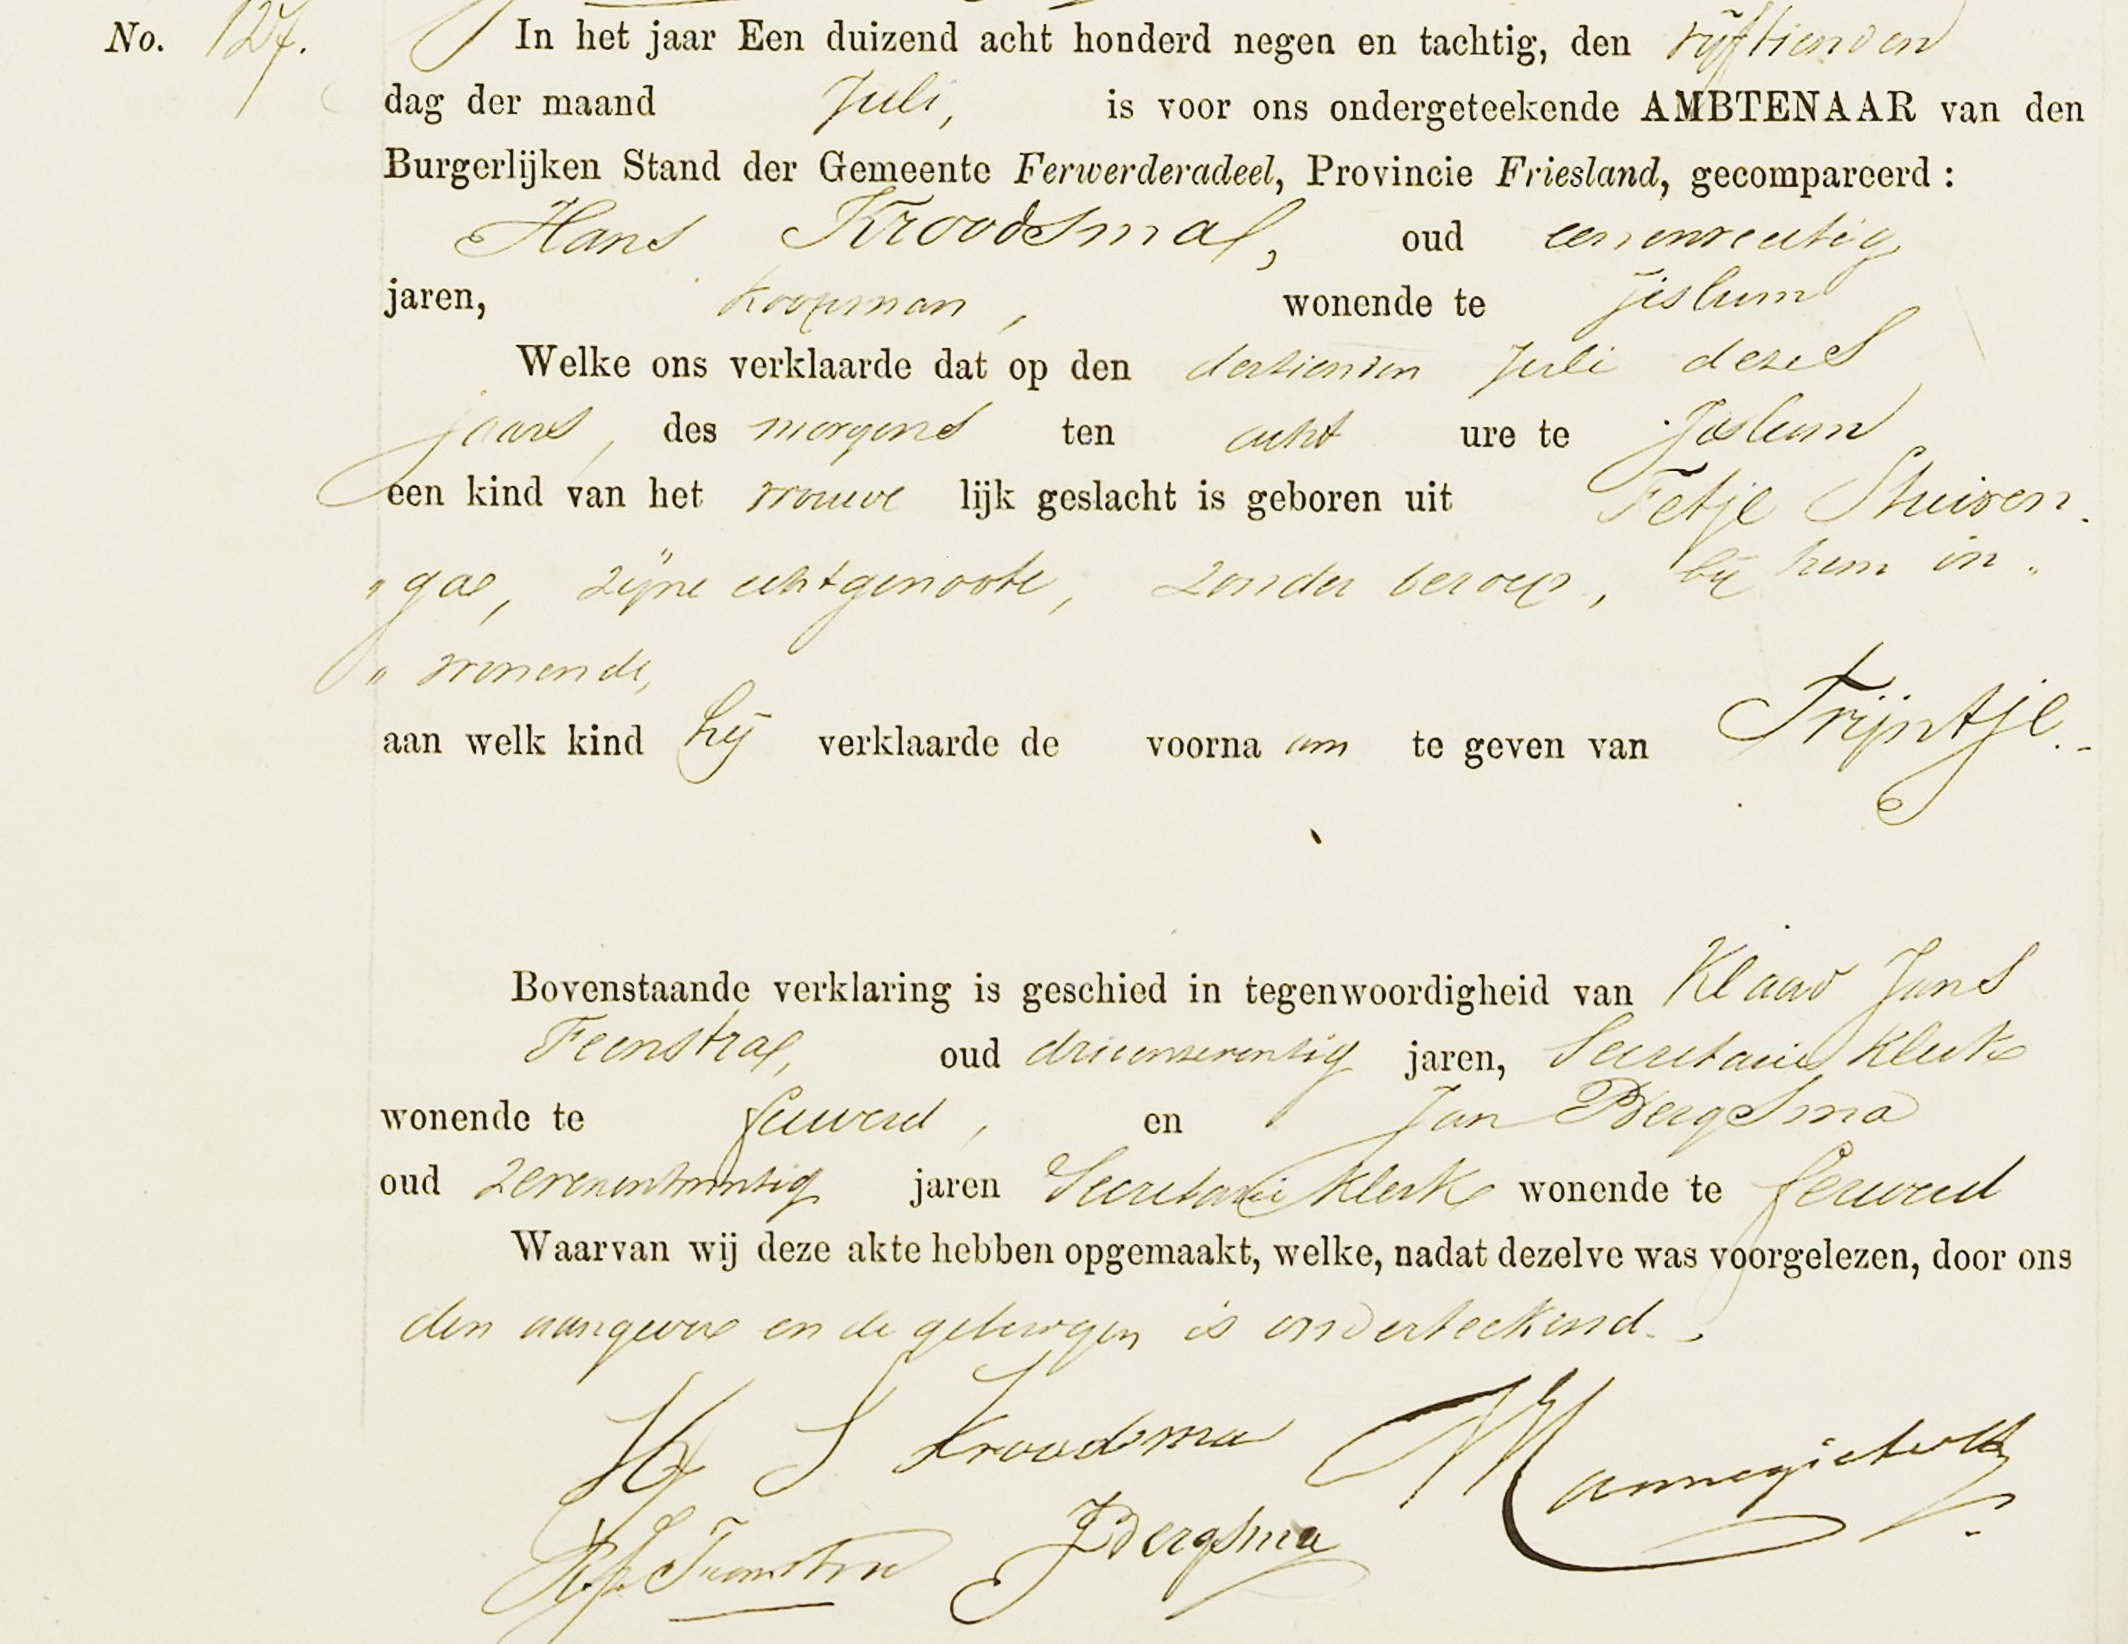 No. 127. In het jaar Een duizend acht honderd negen en tachtig, den vijftienden
dag der maand Juli, is voor ons ondergeteekende AMBTENAAR van den
Burgerlijken Stand der Gemeente Ferwerderadeel, Provincie Friesland, gecompareerd:
Hans Kroodsma, oud eenenveertig
jaren, koopman, wonende te Jislum
Welke ons verklaarde dat op den dertienden Juli dezes
jaars, des morgens ten acht ure te Jislum
een kind van het vrouwe lijk geslacht is geboren uit Fetje Stuiven-
"ga, zijne echtgenoote, zonder beroep, bij hem in"
"wonende,
aan welk kind hij verklaarde de voorna am te geven van Trijntje.-
Bovenstaande verklaring is geschied in tegenwoordigheid van Klaas Jans
Feenstra, oud drieenzeventig jaren, Secretarie Klerk
wonende te Ferwerd, en Jan Bergsma
oud zevenentwintig jaren Secretarie Klerk wonende te Ferwerd
Waarvan wij deze akte hebben opgemaakt, welke, nadat dezelve was voorgelezen, door ons
den aangever en de getuigen is onderteekend.-
H S Kroodsma
Feenstra JBergsma